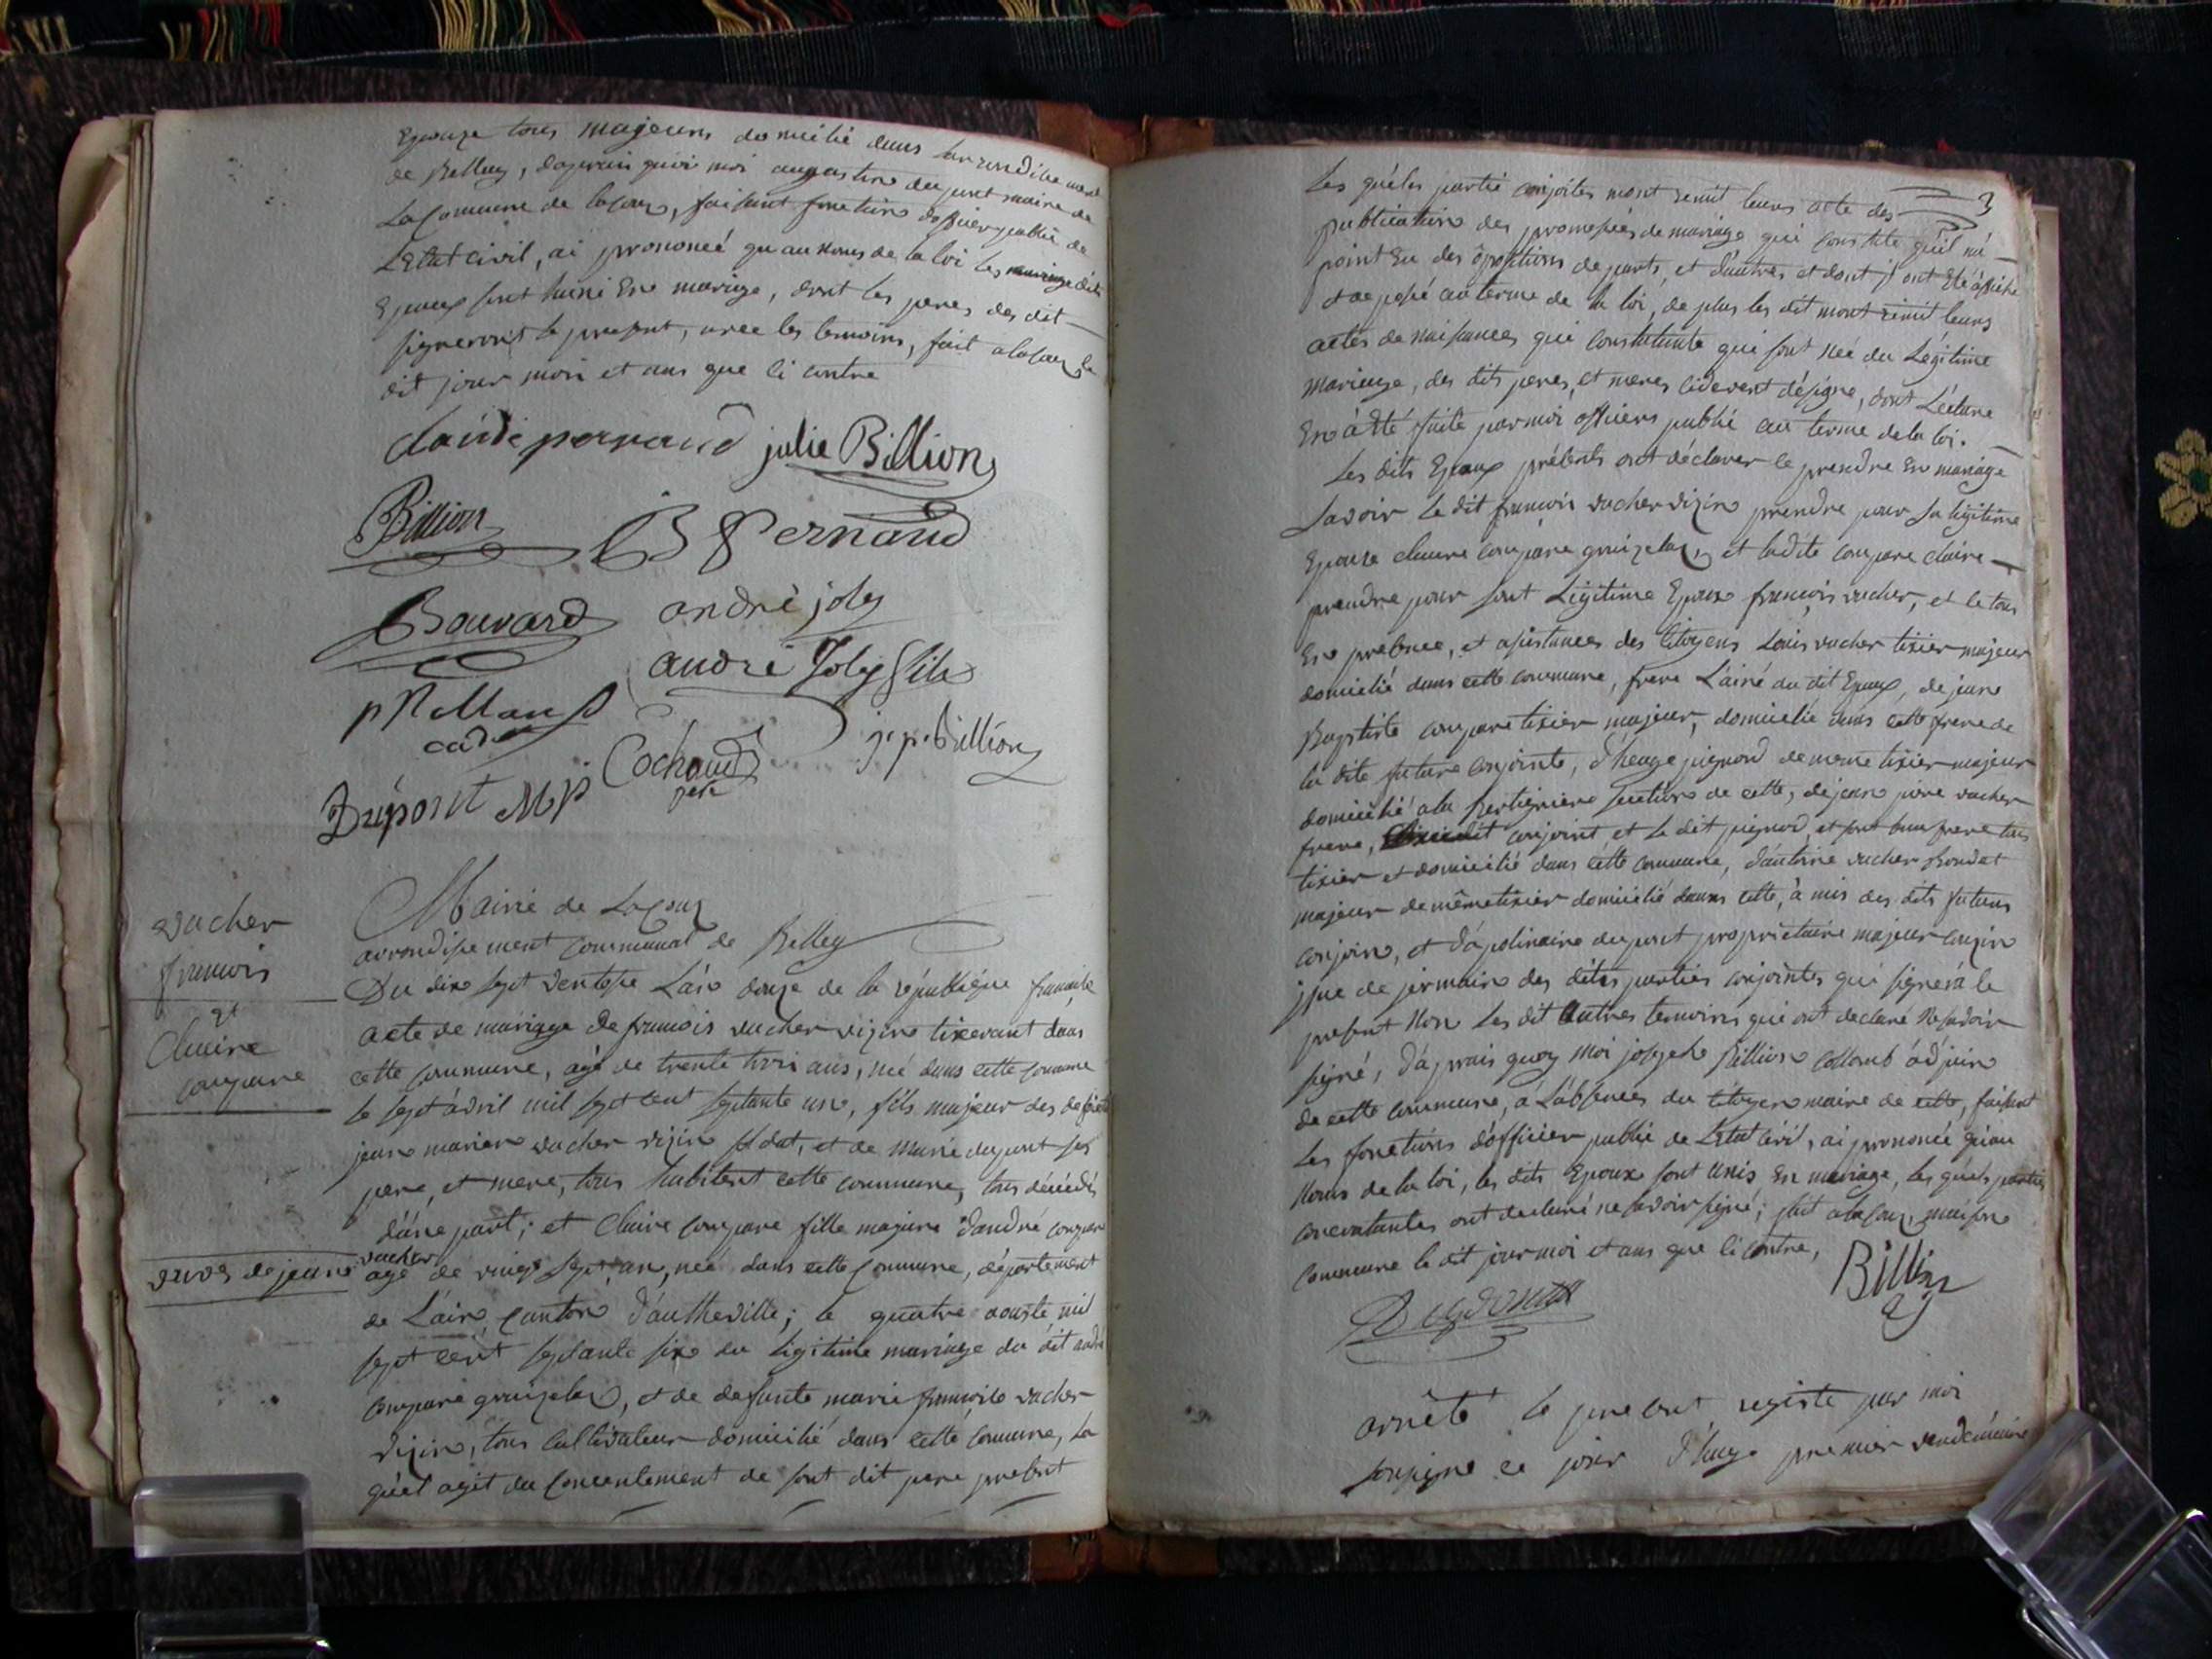 Epouze tous majeurs domicilié dans larrondissement
de Belley, daprais quoi moi augustin dupont maire de
La Commune de lacoux, faisant fonction doficier public de
L'Etat civil, ai prononcé qu au nom de la loi les dits
Epoux sont huni En mariage, dont les peres des dit
signeront le present, avec les temoins, fait a lacoux le
dit jour mois et ans que ci contre
claude pernaud julie Billion
Billion B Pernaud
Bouvard andré joly
andré Joly fils
j. p. Billion
Cochaud
pere
Dupont M
Mairie de Lacoux
arrondissement communal de Belley
vacher
francois
et
Claire
compare
Du dix sept Ventose L'an douze de la république francaise
acte de mariage de francois vacher vizin tixerant dans
cette commune, agé de trente trois ans, né dans cette commune
le sept avril mil sept cent septante un, fils majeur des defunts
jean marie vacher vizin et de marie dupont ses
pere, et mere, tous habitent cette commune, tous décédés
d'une part; et Claire compare fille majure d'andré compare
veuve de jean vacher
agé de vingt sept an, neé dans cette commune, département
de L'ain, canton d'autheville; le quatre aouste mil
sept cent septante six du légitime mariage du dit andré
compare gruizelax, et de defunte marie francoise vacher
vizin, tous cultivateur domicilié dans cette commune, La
quel agit du consentement de sont dit pere present
3
Les quéles partie conjoites mont remit leurs acte des
publication des promesses de mariage qui constate quil n'a
point Eu des opositions de parts et d'autres et dont ont Eté afiché
et deposé au terme de la loi, de plus les dit mont remit leurs
actes de naisances qui constatante qui sont née du Légitime
mariage, des dits peres, et meres cidevent désigné, dont Lecture
En a été faite par moi officiers public au terme de la loi.
Les dits Epoux présents ont déclarer se prendre En mariage
Savoir le dit francois vacher vizin prendre pour sa légitime
Epouze claire compare gruizelax, et ladite compare claire
prendre pour sont Légitime Epoux francois vacher, et le tous
En présence, et asistances des Citoyens Louis vacher tixier majeur
domicilié dans cette commune, frere L'ainé du dit Epoux, de jean
Baptiste compare tixier majeur, domicilié dans cette frere de
la dite future conjointe, d'heuge pignod de meme tixier majeur
domicilié a la section de cette, de jean pierre vacher
frere, conjoint et le dit pignod, et sont beau frere tous
tixier et domicilié dans cette commune, d'antoine vacher Rondet
majeur de même tixier domicilié dans cette, à mis des dits futurs
conjoin, et d'apolinaire dupont proprietaire majeur couzin
jsue de jermain des dites parties conjointes qui signera le
present Non Les dit autres temoins qui ont declaré ne savoir
signé, d'aprais quoy moi joseph Billion Collomb adjoin
de cette commune, a L'absences du Citoyen maire de cette, faisant
Les fonctions d'officier public de L'Etat civil, ai prononcé qu'au
Nom de la loi, les dits Epoux sont unis En mariage, Les quels parties
ont declaré ne savoir signé; fait a lacoux, maison
commune le dit jour moi et ans que ci contre,
Billion
adj
arrêté le present registe par moi
soussigne ce jour d'huy premier vendémiaire